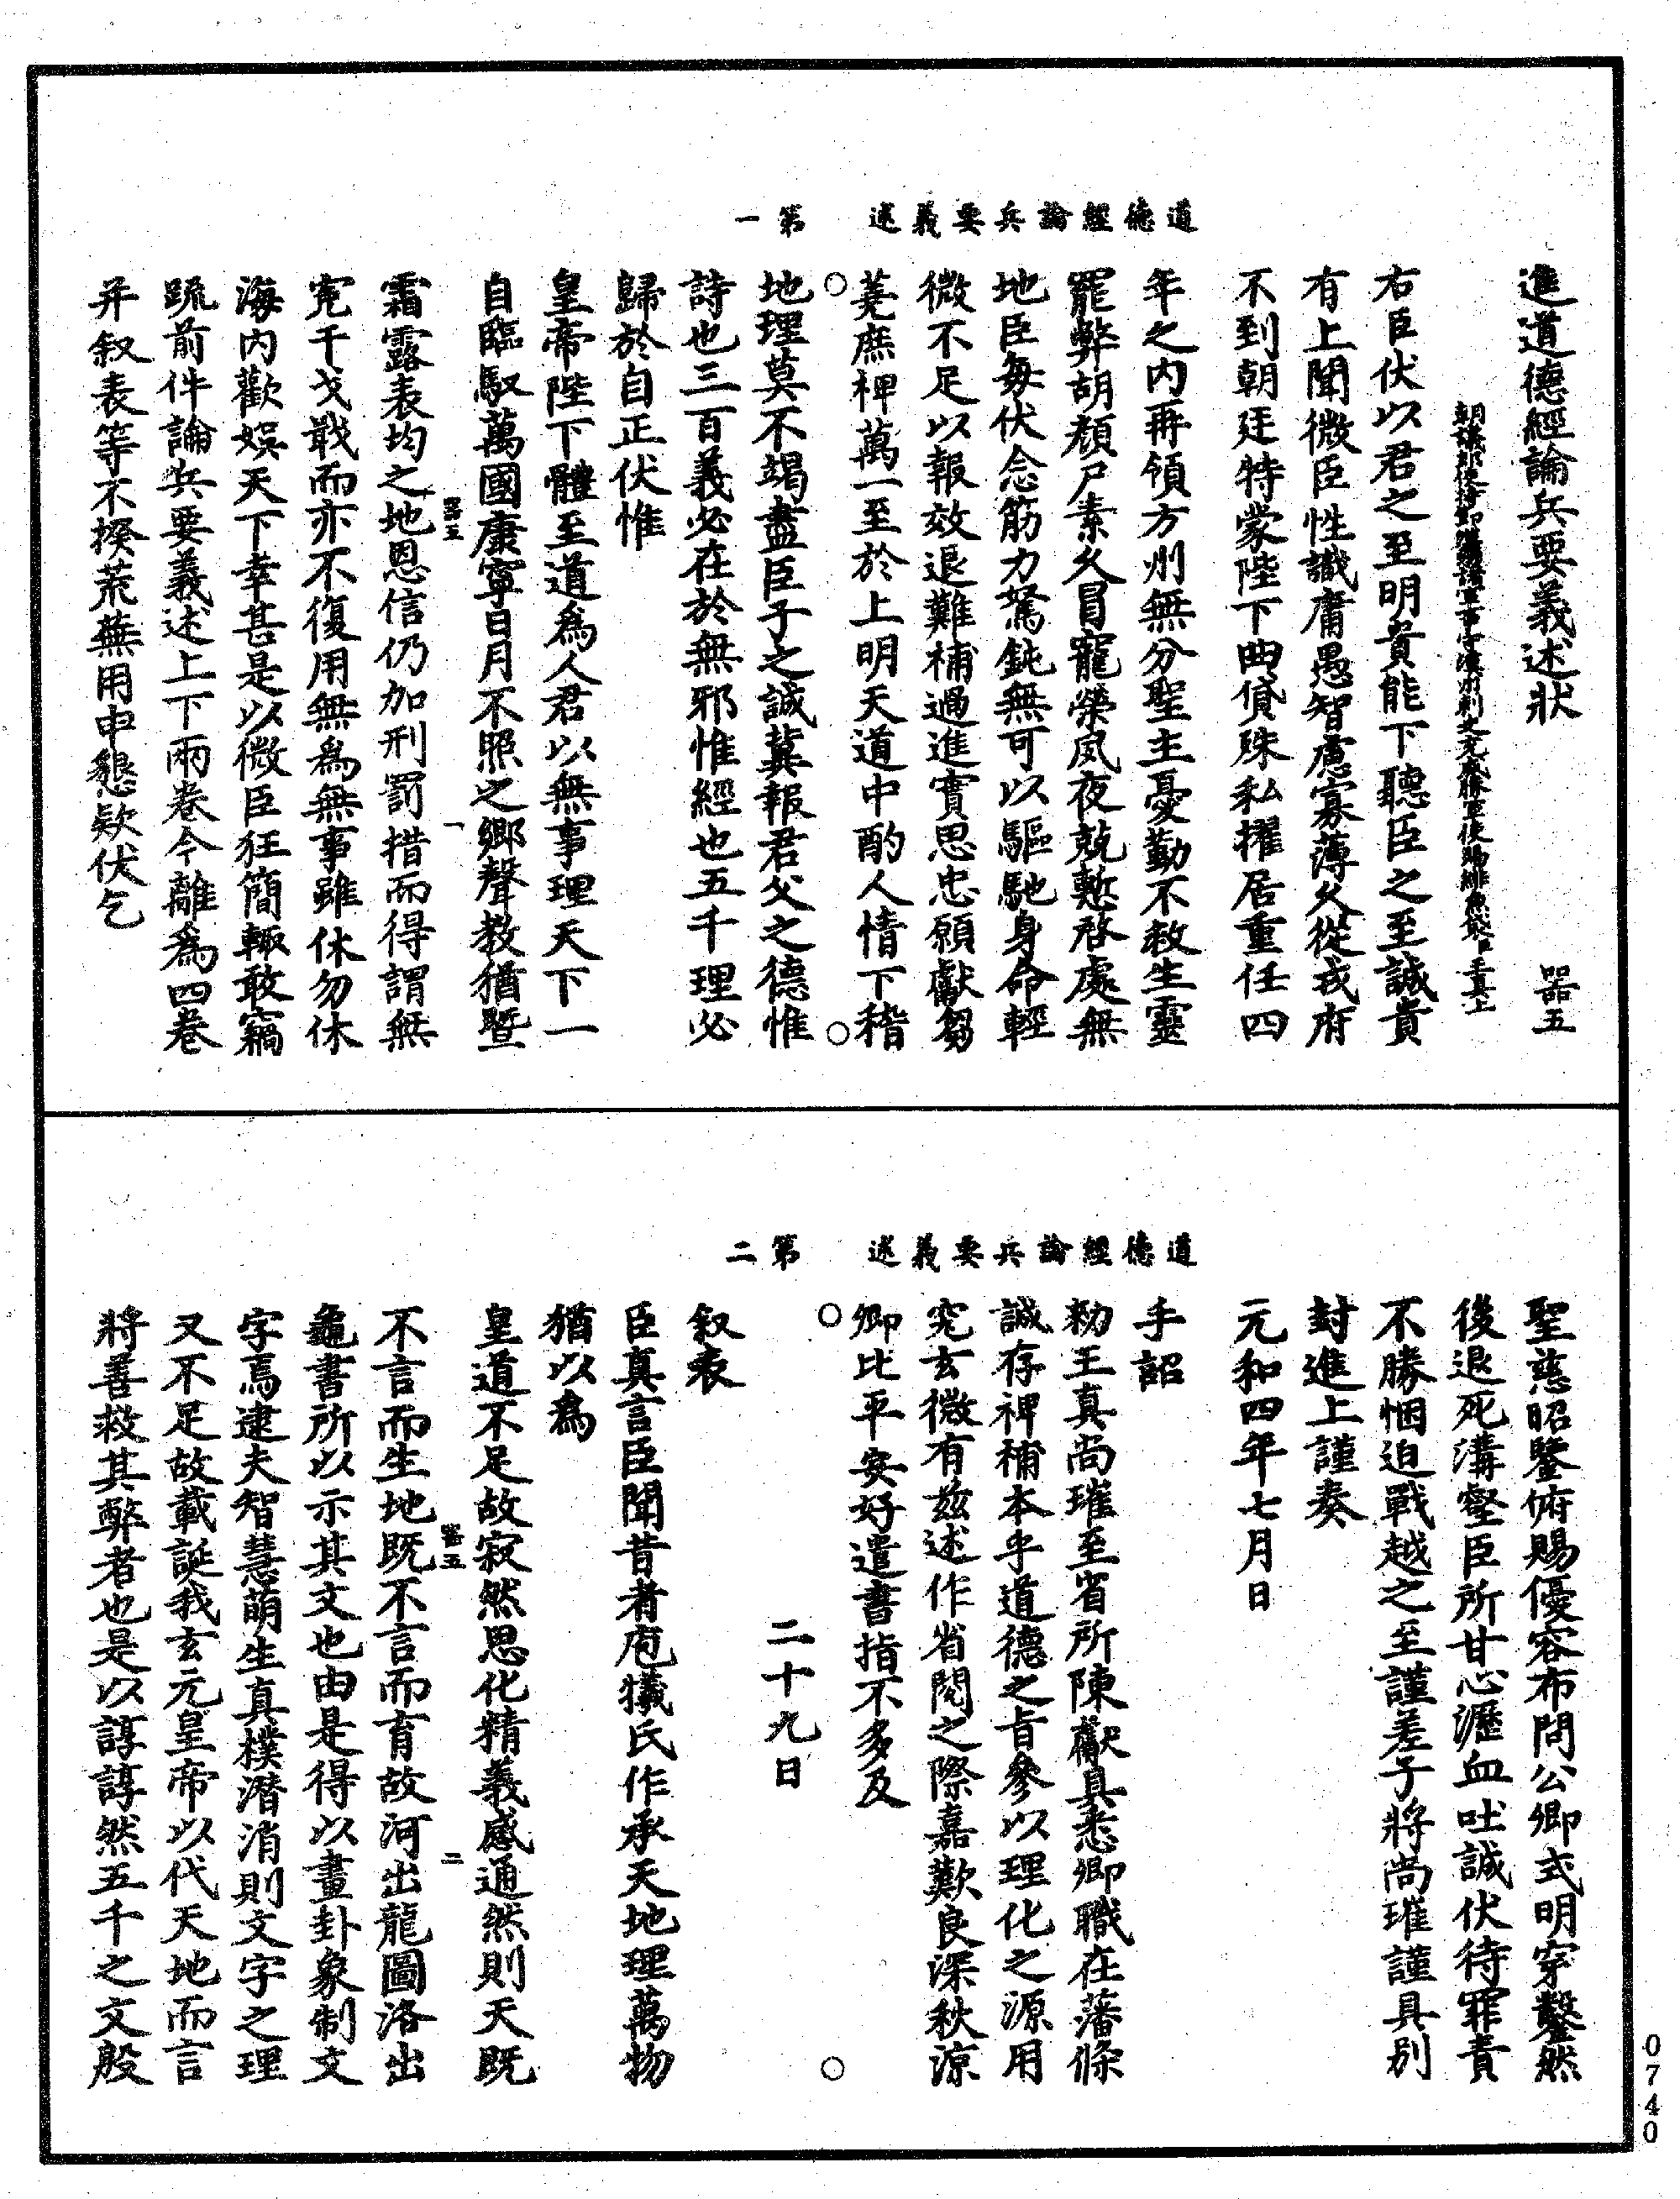 進道德經論兵要義述狀　器五
朝議郎使持節漢州諸軍事守漢州刺史充威勝軍使賜緋魚袋臣王真上
右臣伏以君之至明貴能下聽臣之至誠貴
有上聞微臣性識庸愚智慮寡薄久從戎府
不到朝廷特蒙陛下曲貸殊私擢居重任四
年之內再領方州無分聖主憂勤不救生靈
罷弊胡顏尸素久冒寵榮夙夜兢慙啓處無
地臣每伏念筋力駑鈍無可以驅馳身命輕
微不足以報效退難補過進實思忠願獻芻
蕘庶裨萬一至於上明天道中酌人情下稽
道德經論兵要義述　第一
地理莫不竭盡臣子之誠冀報君父之德惟
詩也三百義必在於無邪惟經也五千理必
歸於自正伏惟
皇帝陛下體至道爲人君以無事理天下一
自臨馭萬國康寧日月不照之鄉聲教猶暨
器五　一
霜露表均之地恩信仍加刑罰措而得謂無
寃干戈戢而亦不復用無爲無事雖休勿休
海內歡娛天下幸甚是以微臣狂簡輙敢竊
䟽前件論兵要義述上下兩卷今離爲四卷
并叙表等不揆荒蕪用申懇欵伏乞
聖慈昭鑒俯賜優容布問公卿式明穿鑿然
後退死溝壑臣所甘心瀝血吐誠伏待罪責
不勝悃迫戰越之至謹差子將尚璀謹具別
封進上謹奏
元和四年七月日
手詔
勑王真尚璀至省所陳獻具悉卿職在藩條
誠存裨補本乎道德之旨參以理化之源用
究玄微有茲述作省閱之際嘉歎良深秋涼
卿比平安好遣書指不多及
道德經論兵要義述　第二
二十九日
叙表
臣真言臣聞昔者庖犧氏作承天地理萬物
猶以爲
皇道不足故寂然思化精義感通然則天既
器五　二
不言而生地既不言而育故河出龍圖洛出
龜書所以示其文也由是得以畫卦象制文
字焉逮夫智慧萌生真樸潛消則文字之理
又不足故載誕我玄元皇帝以代天地而言
將善救其弊者也是以諄諄然五千之文殷
0740